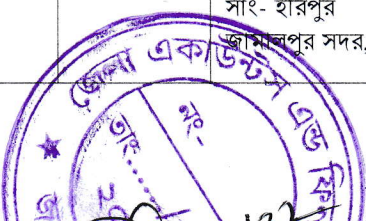 সাং- হরিপুর
জামালপুর সদর,
জেলা একাউন্টস এন্ড ফি
নং-
তাং.....